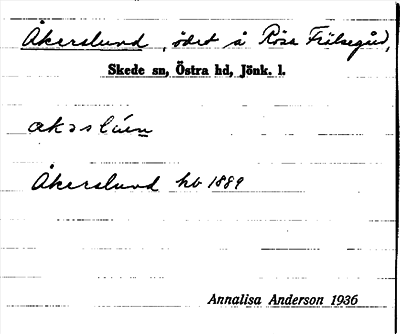 Åkerslund, ödet å Rösa Frälsegård,
Skede sn, Östra hd, Jönk. l.
Åkerslund hb 1889
Annalisa Anderson 1936